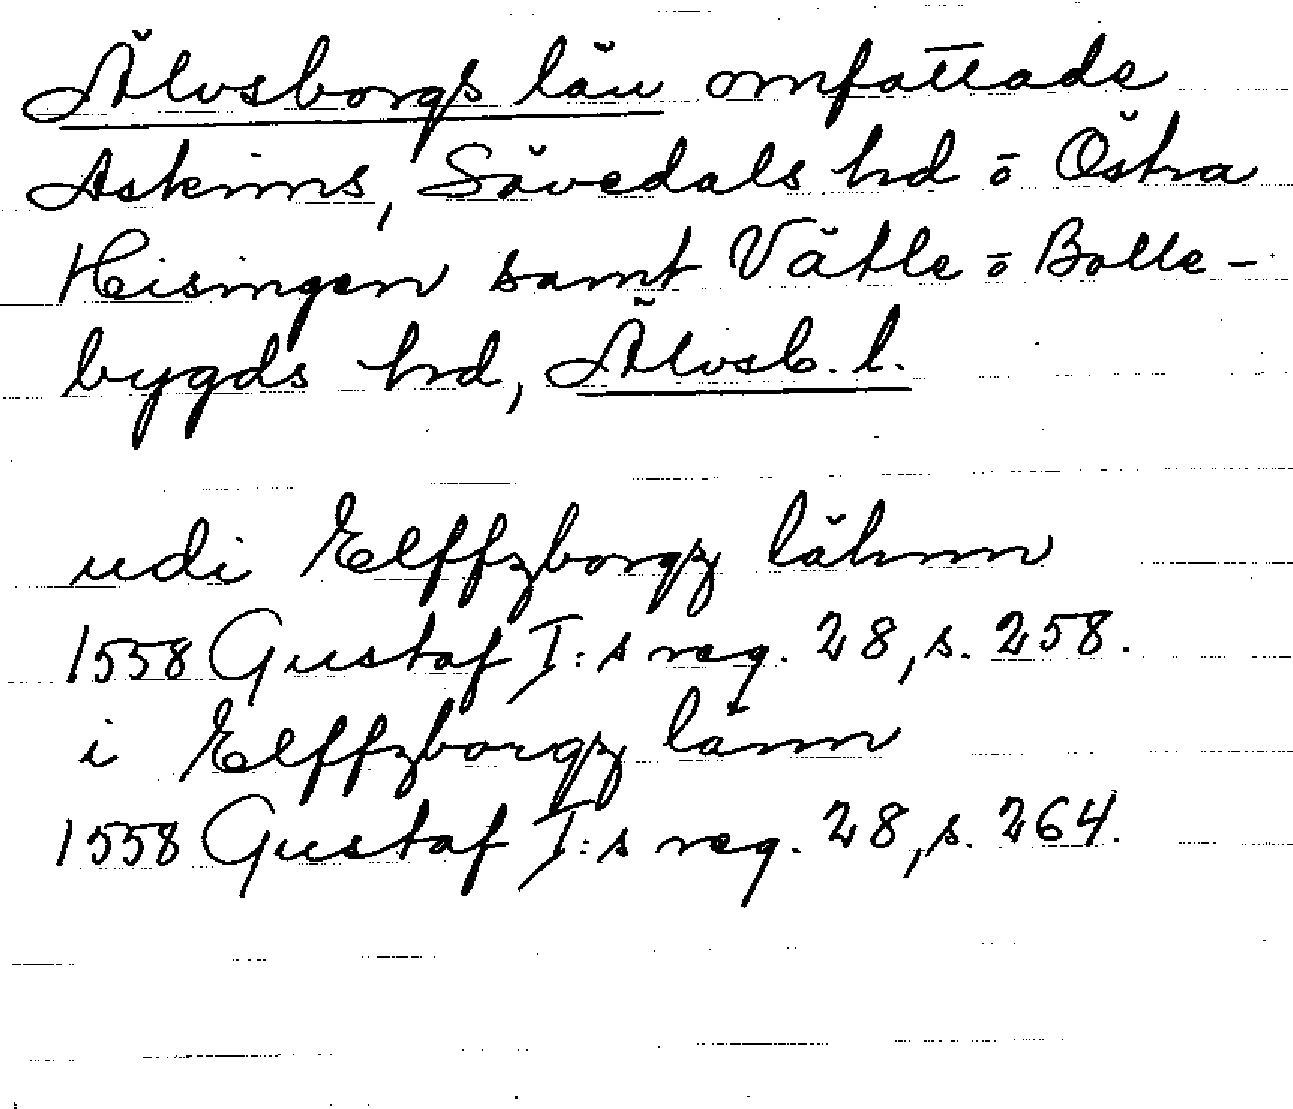 Älvsborgs län omfattade
Askims, Sävedals hd ō Östra
Hisingen samt Vätle ō Bolle-
bygds hd, Älvsb. l.
udi Elffzborgz lähnn
1558 Gustaf I:s reg. 28, s. 258.
i Elffzborgz länn
1558 Gustaf I:s reg. 28, s. 264.